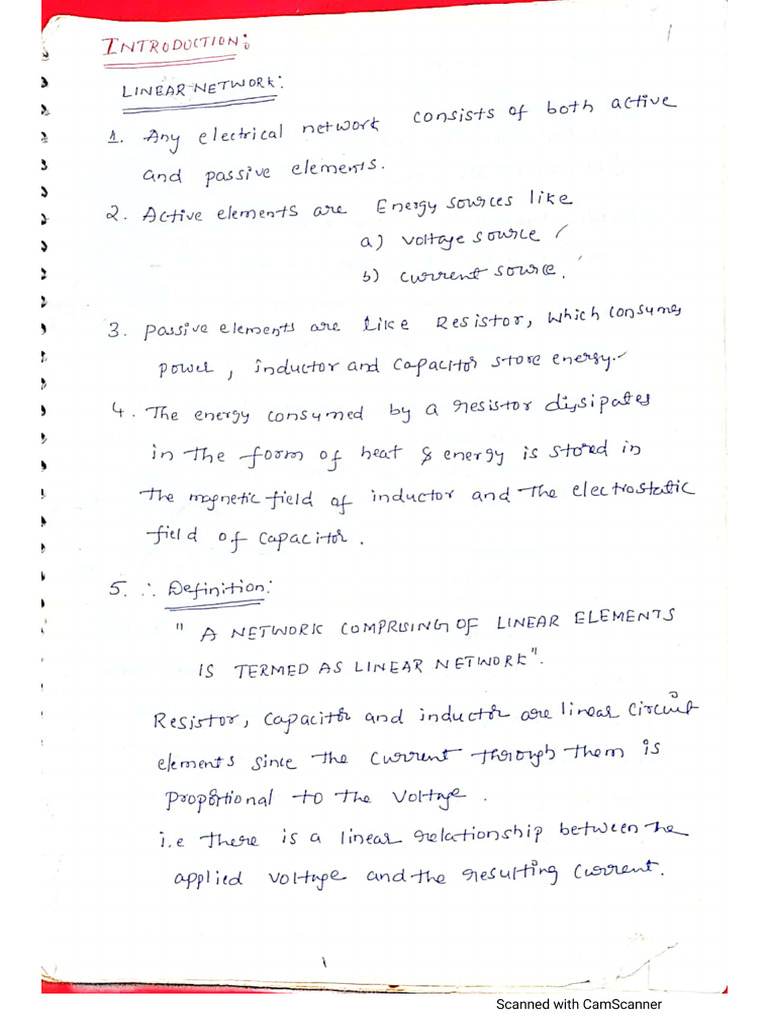 1
INTRODUCTION:
LINEAR NETWORK:
1. Any electrical network consists of both active
and passive elements.
2. Active elements are Energy sources like
a) voltage source
b) current source.
3. passive elements are like Resistor, which consumes
power, inductor and capacitor store energy.
4. The energy consumed by a resistor dissipates
in the form of heat & energy is stored in
the magnetic field of inductor and the electrostatic
field of capacitor.
5. ∴ Definition:
" A NETWORK COMPRISING OF LINEAR ELEMENTS
IS TERMED AS LINEAR NETWORK".
Resistor, capacitor and inductor are linear circuit
elements since the current through them is
proportional to the voltage.
i.e there is a linear relationship between the
applied voltage and the resulting current.
1
Scanned with CamScanner